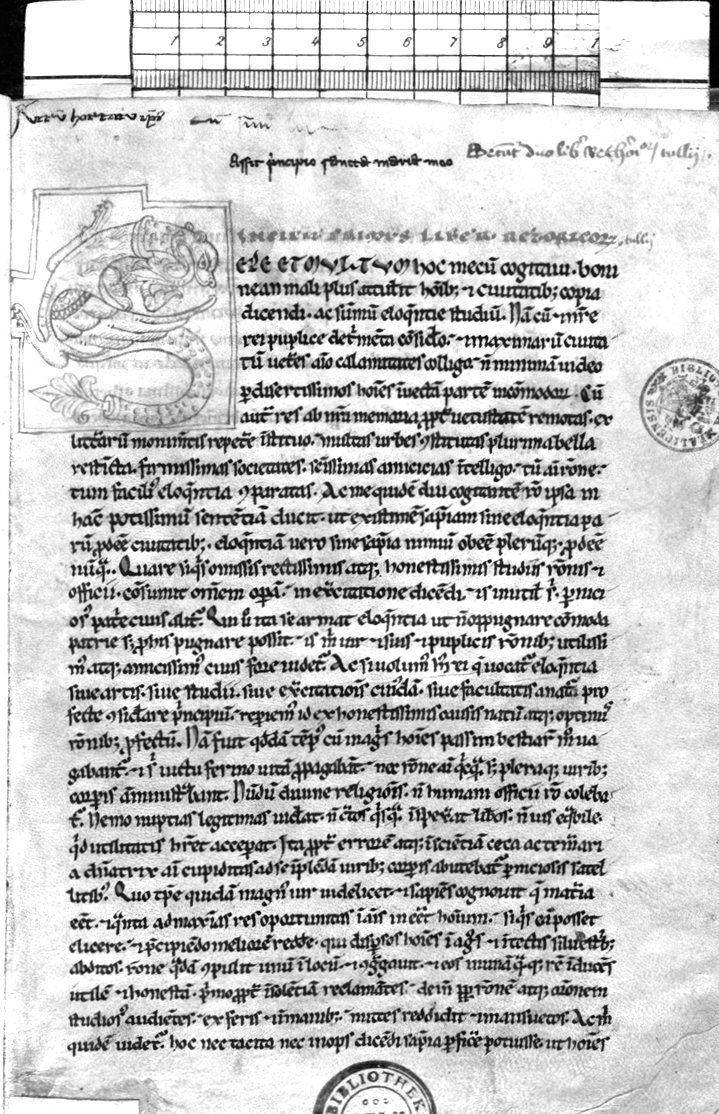 1 2 3 4 5 6 7 8 9 1
Assit principio sancta maria meo
duo lib Rethor tullij
INCIPIT PRIMUS LIBER RETORICORZ tullij
EPE ET MVLTVM hoc mecū cogitaui. boni
ne an mali plus attulerit hoīb; ⁊ ciuitatib; copia
dicendi. ac sūmū eloqñtie studiū. Nā cū ⁊ nr̄e
rei puplice det̄mēta cōsid̄o. ⁊ maximarū ciuita
tū uet̄es aīo calamitates colligo. n̄ minimā uideo
ꝑ disertissimos hoīes īuectā partē incōmodoꝝ. Cū
aut̄ res ab nr̄i memoria ꝓpt̄ uetustatē remotas. ex
litt̄arū monimtis repet̄e īstituo. multas urbes ꝯstitutas plurima bella
restīcta. firmissimas societates. sc̄issimas amicicias īt̄elligo. tū aī rōne.
tum facili᷒ eloqñtia ꝯparatas. Ac me quidē diu cogitantē rō ipsa in
hanc potissimū sententiā ducit. ut existimē sapīam sine eloqñtia pa
rū ꝓdēe ciuitatib;. eloqñtiā uero sine sapīa nimiū obēe plerūq;. ꝓdēe
nūq̄. Quare siq̄s omissis rectissimis atq; honestissimis studiis rōnis ⁊
officii. cōsumit om̄em opā. in exc̄itatione dicēdi. is inutil s̄. ꝑnici
os᷒ patē ciuis alit̄. Qui ū ita se armat eloqñtia ut n̄ oppugnare cōmoda
patrie s; ꝓ his pugnare possit. is m̄ uir ⁊ suis ⁊ puplicis rōnib; utilissi
m᷒ atq; amicissim᷒ ciuis fore uidet̄. Ac si uolum᷒ h᷒ rei q̄ uocat̄ eloqñtia
siue artis. siue studii. siue exc̄itationis cui᷒dā. siue facultatis a natā pro
fecte ꝯsid̄are p̄ncipiū. repiem᷒ id ex honestissimis causis natū atq; optimis
rōnib; ꝓfectū. Nā fuit qd̄dā tēp᷒ cū in ag̃s hoīes passim bestiaꝝ m̄ ua
gabant̄. ⁊ s̄ uictu ferino uitā ꝓpagabāt. nec rōne aī qcq̄ s; pleraq; uirib;
corporis āministrabant. Nūdū diuine religiois. n̄ humani officii rō coleba
t̄. Nemo nuptias legitimas uid̄at. n̄ c̄tos q̄sq̄ īspexat lib̄os. n̄ ius eqbile.
qd̄ utilitatis hr̄et accepat. Ita ꝓpt̄ errorē atq; īscientiā ceca ac tem̄ari
a dn̄atrix aī cupiditas ad se īplēdā uirib; corporis abutebat̄ ꝑniciosis satel
litib᷒. Quo tp̄e quidā magn᷒ uir uidelicet ⁊ sapiēs cognouit q̄ mat̄ia
eēt. ⁊ q̄nta ad maxīas res oportunitas ī aīs in eēt hoīum. siq̄s eā posset
elicere. ⁊ p̄cipiēdo meliorē redd̄e. qui dispsos hoīes ī ag̃s ⁊ ī tectis siluestrib;
abditos. rōne q̄dā ꝯpulit unū ī locū. ⁊ ꝯg̃gauit. ⁊ eos ī unā q̄q; rē īducēs
utilē ⁊ honestā. p̄mo ꝓpt̄ īsolētiā reclamātes. dein ꝓpt̄ rōnē atq; orōnem
studios᷒ audiētes. ex feris ⁊ īmanib; mites reddidit ⁊ mansuetos. Ac m̄
quidē uidet̄. hoc nec tacita nec inops dicēdi sapīa ꝑfic̄e potuisse. ut hoīes
BIBLIOTHEK